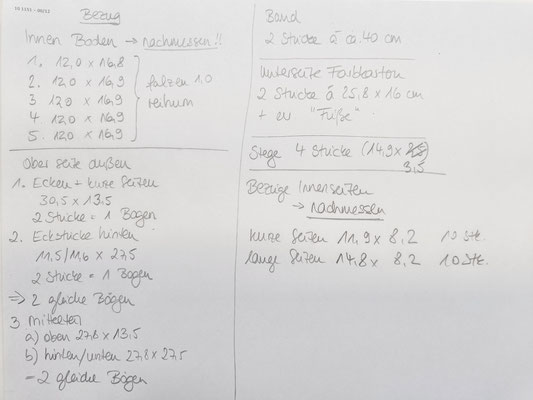 Bezug
Innen Boden → nachmessen!!
1. 12,0 x 16,8
2. 12,0 x 16,9
3 12,0 x 16,9
4. 12,0 x 16,9
5. 12,0 x 16,9
falzen 1,0
reihum
Ober seite außen
1. Ecken + kurze Seiten
30,5 x 13,5
2 Stücke = 1 Bogen
2. Eckstücke hinten
11,5/11,6 x 27,5
2 Stücke = 1 Bogen
⇒ 2 gleiche Bögen
3 Mittelteil
a) oben 27,8 x 13,5
b) hinten/unten 27,8 x 27,5
– 2 gleiche Bögen
Band
2 Stücke á ca. 40 cm
Unterseite Farbkarton
2 Stücke á 25,8 x 16 cm
+ ev "Füße"
Stege 4 Stücke (14,9 x
3,5
Bezüge Innenseiten
→ nachmessen
kurze Seiten 11,9 x 8,2 10 Stk.
lange Seiten 14,8 x 8,2 10 Stk.